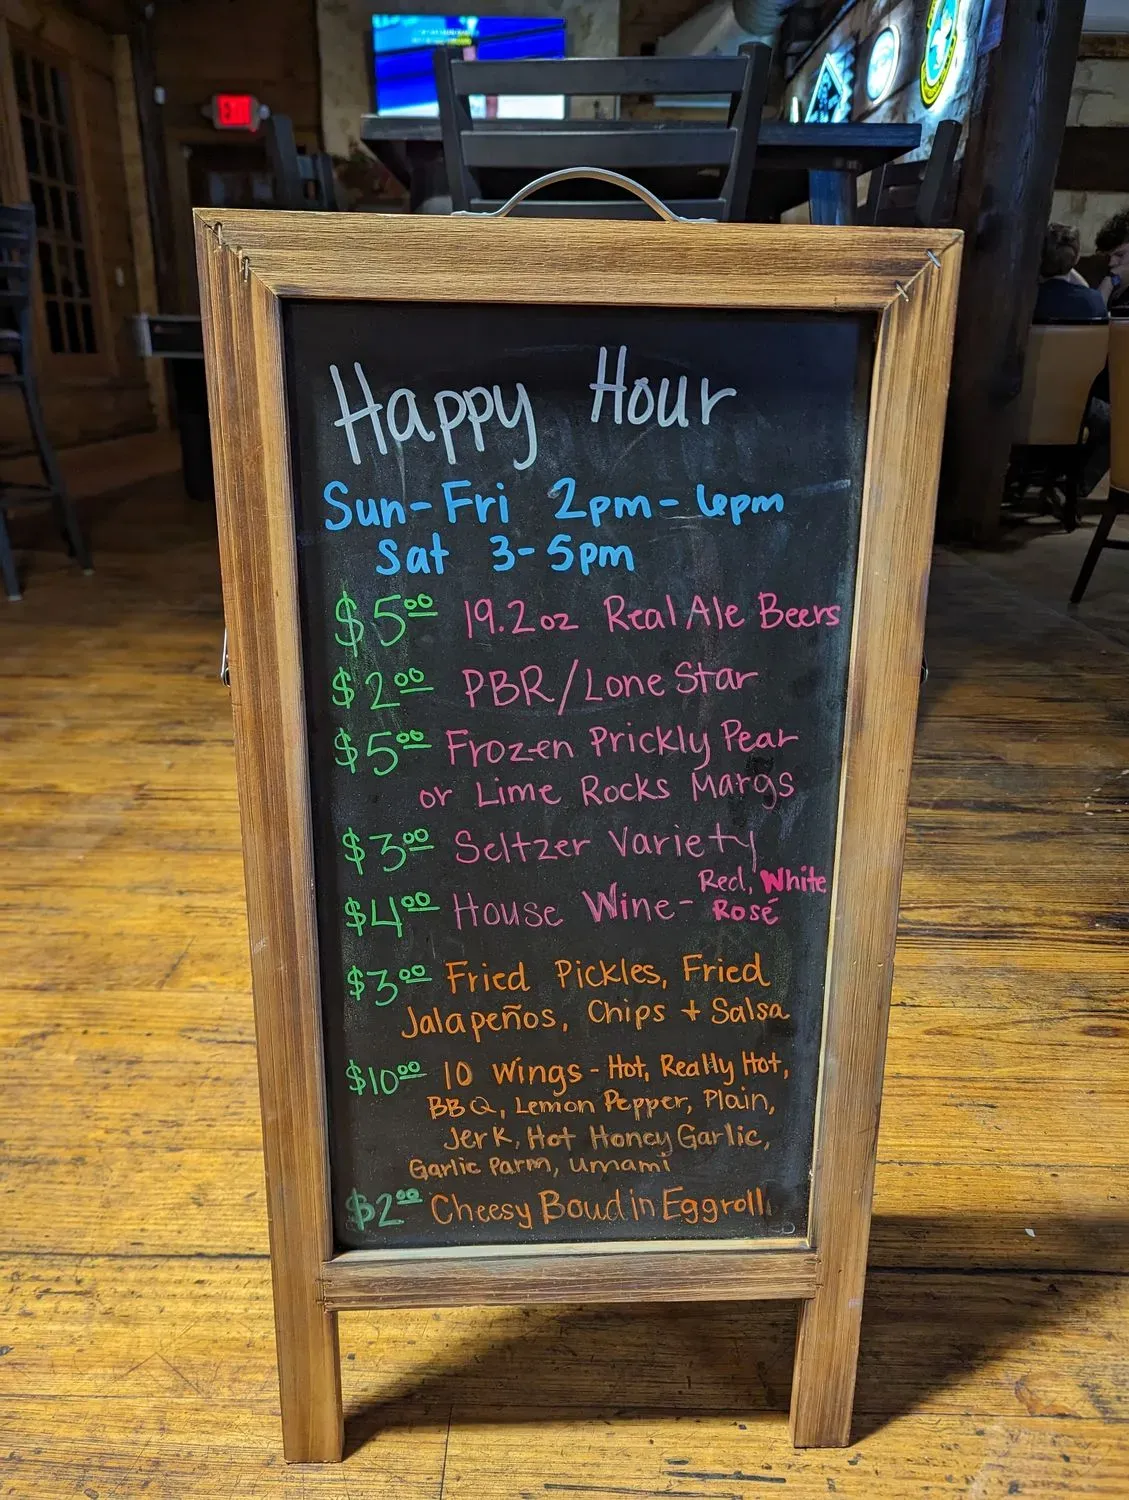 Happy Hour
Sun-Fri 2pm-6pm
Sat 3-5pm
$5.00 19.2oz Real Ale Beers
$2.00 PBR/Lone Star
$5.00 Frozen Prickly Pear
or Lime Rocks Margs
$3.00 Seltzer Variety
$4.00 House Wine- Red, White
Rosé
$3.00 Fried Pickles, Fried
Jalapeños, Chips + Salsa
$10.00 10 Wings - Hot, Really Hot,
BBQ, Lemon Pepper, Plain,
Jerk, Hot Honey Garlic,
Garlic Parm, Umami
$2.00 Cheesy Boudin Eggroll